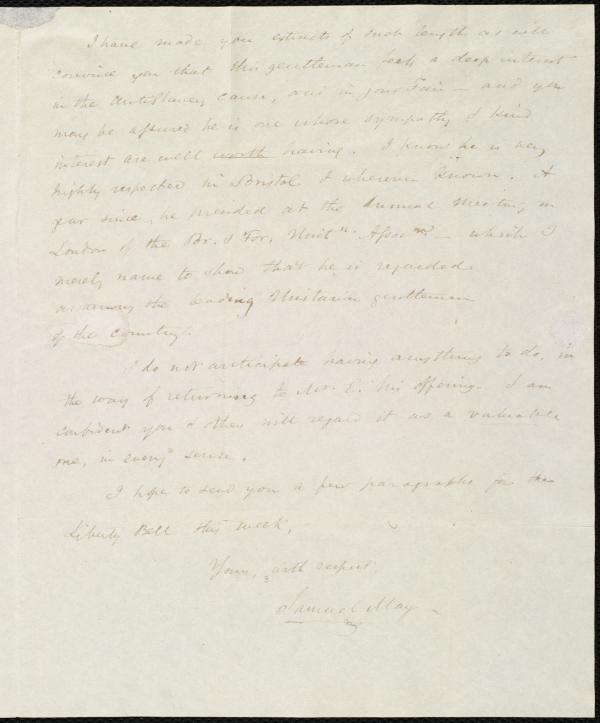 I have made you extracts of such length as will
convince you that this gentleman feels a deep interest
in the AntiSlavery cause, and in your Fair — and you
may be assured he is one whose sympathy & kind
interest are well worth having. I know he is very
highly respected in Bristol & wherever known. A
year since, he presided at the Annual Meeting in
London of the Br. & For. Unitn. Assocn. — which I
merely name to show that he is regarded
as among the leading Unitarian gentlemen
of the country.
I do not anticipate having anything to do, in
the way of returning to Mr. E. his offering. I am
confident you & others will regard it as a valuable
one, in every sense.
I hope to send you a few paragraphs for the
Liberty Bell this week.
Yours, with respect,
Samuel May